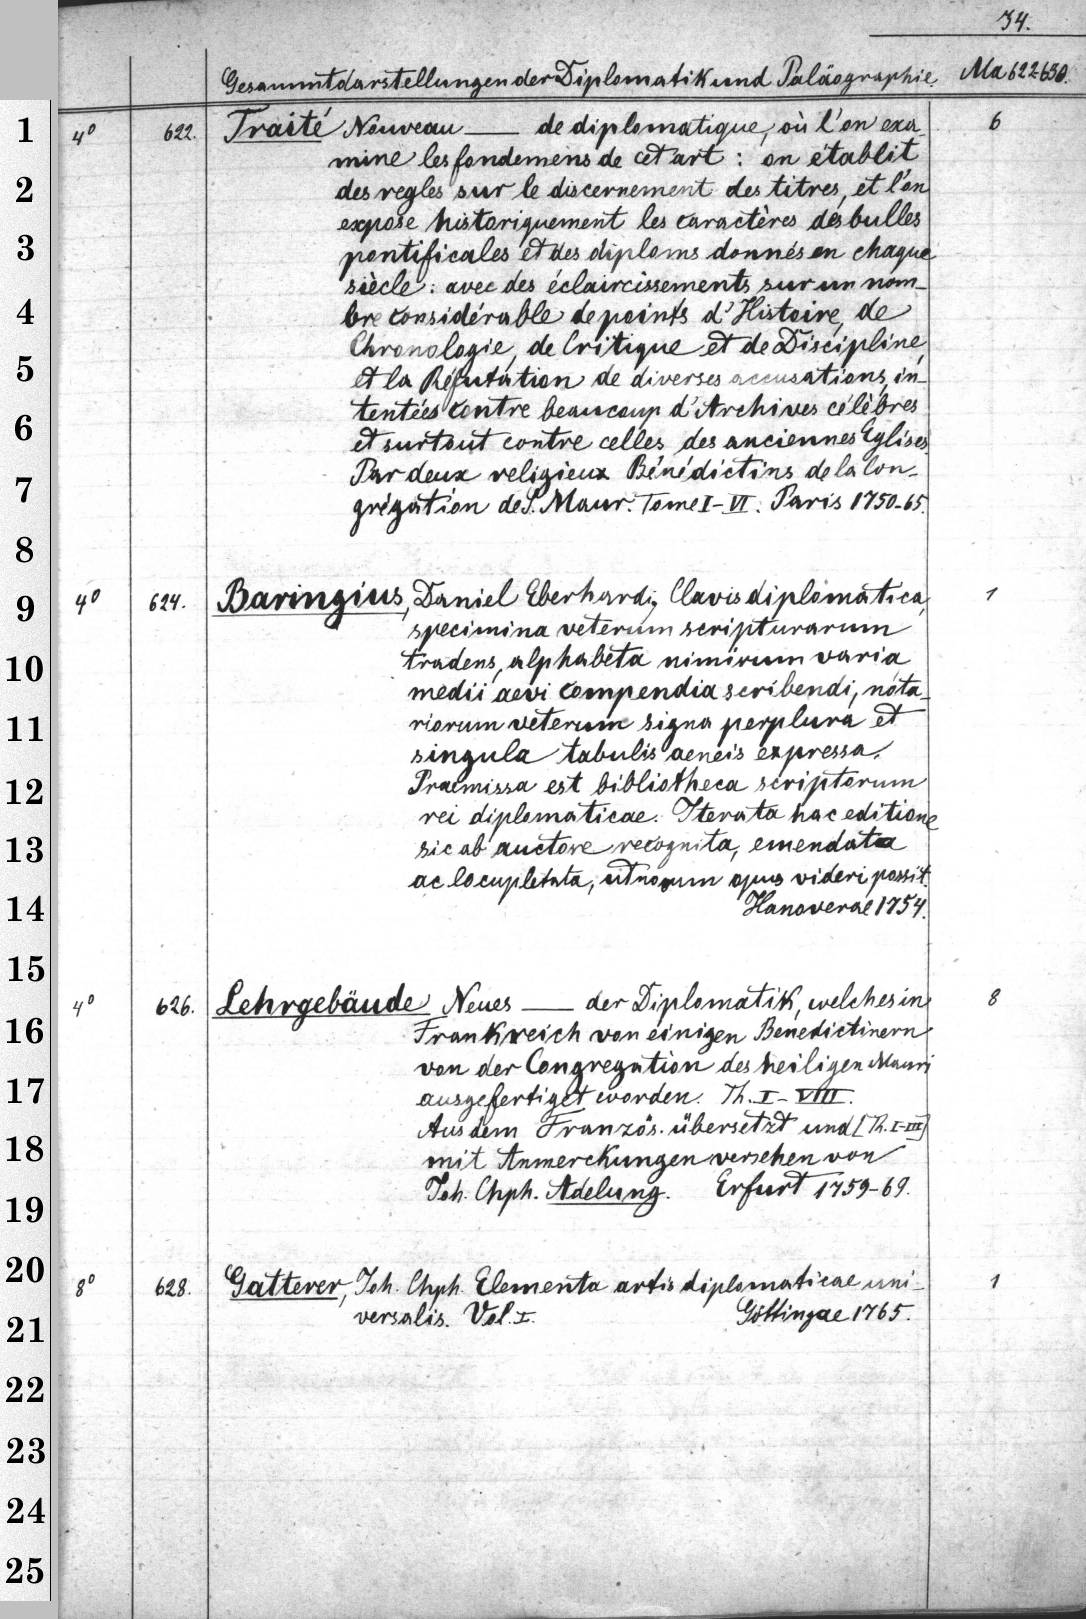 34.
Gesammtdarstellungen der Diplomatik und Paläographie. Ma 622-630.
1 4° 622. Traité Nouveau —— de diplomatique, où l'on exa- 6
mine les fondemens de cet art : on établit
2 des regles sur le discernement des titres, et l'on
expose historiquement les caractères des bulles
3 pontificales et des diploms donnés en chaque
siècle : avec des éclaircissements sur un nom-
4 bre considérable de points d'Histoire, de
Chronologie, de Critique et de Discipline,
5 et la Réfutation de diverses accusations in-
tentées contre beaucoup d'Archives célèbres
6 et surtout contre celles des anciennes Eglises.
Par deux religieux Bénédictins de la Con-
7 grégation de S. Maur. Tome I-VI. Paris 1750-65.
8
9 4° 624. Baringius, Daniel Eberhardi, Clavis diplomatica, 1
specimina veterum scripturarum
10 tradens, alphabeta nimirum varia,
medii aevi compendia scribendi, nota-
11 riorum veterum signa perplura et
singula tabulis aeneis expressa.
12 Praemissa est bibliotheca scriptorum
rei diplomaticae. Iterata hac editione
13 sic ab auctore recognita, emendata
ac locupletata, ut novum opus videri possit.
14 Hanoverae 1754.
15
4° 626. Lehrgebäude Neues —— der Diplomatik, welches in 8
16 Frankreich von einigen Benedictinern
von der Congregation des heiligen Mauri
17 ausgefertiget worden. Th. I-VIII.
Aus dem Französ. übersetzt und [Th. I-III]
18 mit Anmerckungen versehen von
19 Joh. Chph. Adelung. Erfurt 1759-69.
20 8° 628. Gatterer, Joh. Chph. Elementa artis diplomaticae uni- 1
21 versalis. Vol. I. Göttingae 1765.
22
23
24
25